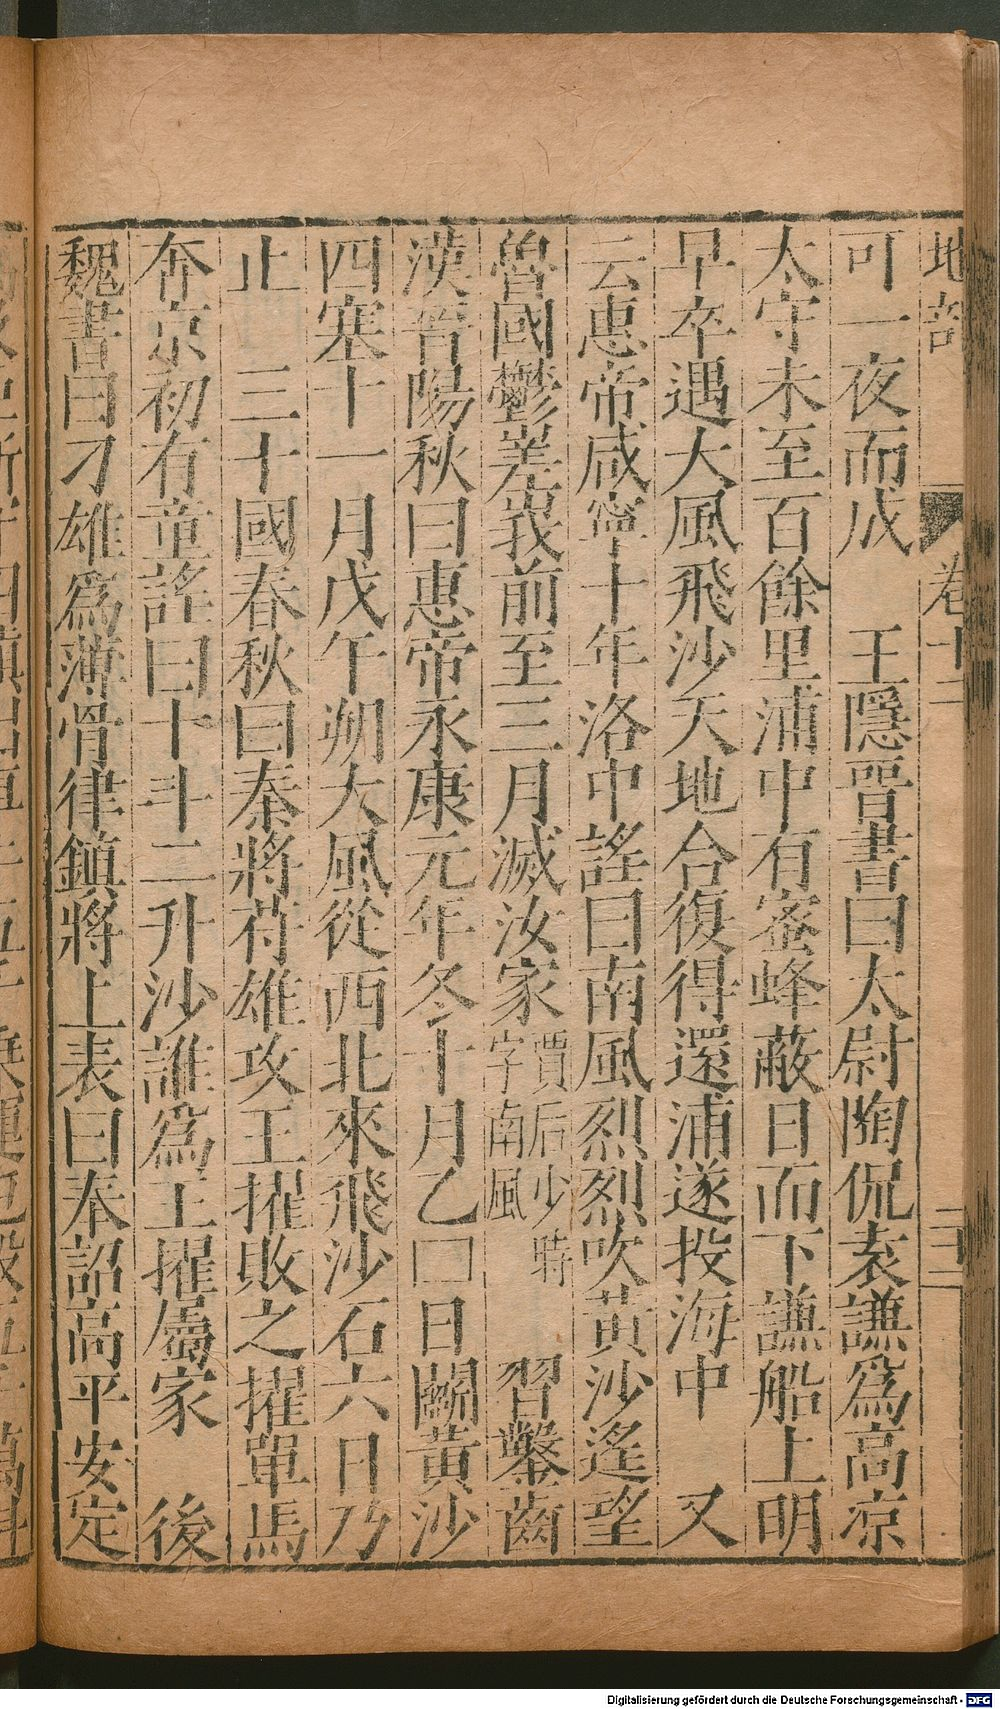 地部 卷十二
可一夜而成 王隱晉書曰太尉陶侃表謙爲高凉
太守未至百餘里浦中有蜜蜂蔽日而下謙船上明
早卒遇大風飛沙天地合復得還浦遂投海中 又
云惠帝咸寧十年洛中謠曰南風烈烈吹黃沙遙望
魯國鬱嵳峩前至三月滅汝家賈后少時字南風 習鑿齒
漢晉陽秋曰惠帝永康元年冬十月乙囗日闕黃沙
四塞十一月戊午朔大風從西北來飛沙石六日乃
止 三十國春秋曰秦將苻雄攻王擢敗之擢單馬
奔京初有童謠曰十斗二升沙誰爲王擢屬家 後
魏書曰刁雄爲薄骨律鎮將上表曰奉詔高平安定
Digitalisierung gefördert durch die Deutsche Forschungsgemeinschaft - DFG